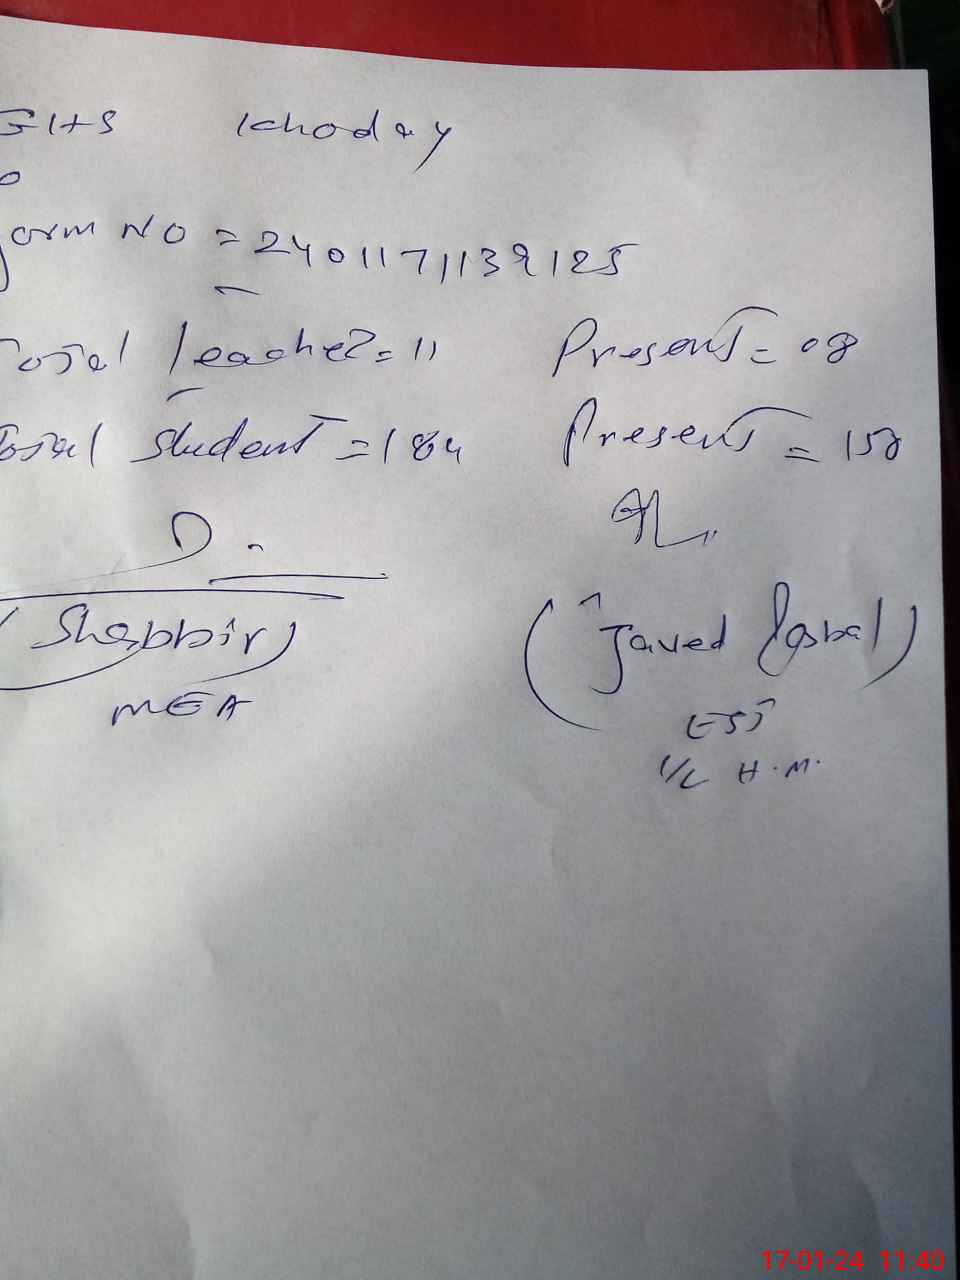 GHS Khoday
Form NO = 2401171139125
Total Teacher = 11 Present = 08
Total student = 184 Present = 158
(Shabbir) (Javed Iqbal)
MEA EST
I/C H.M.
17-01-24 11:40